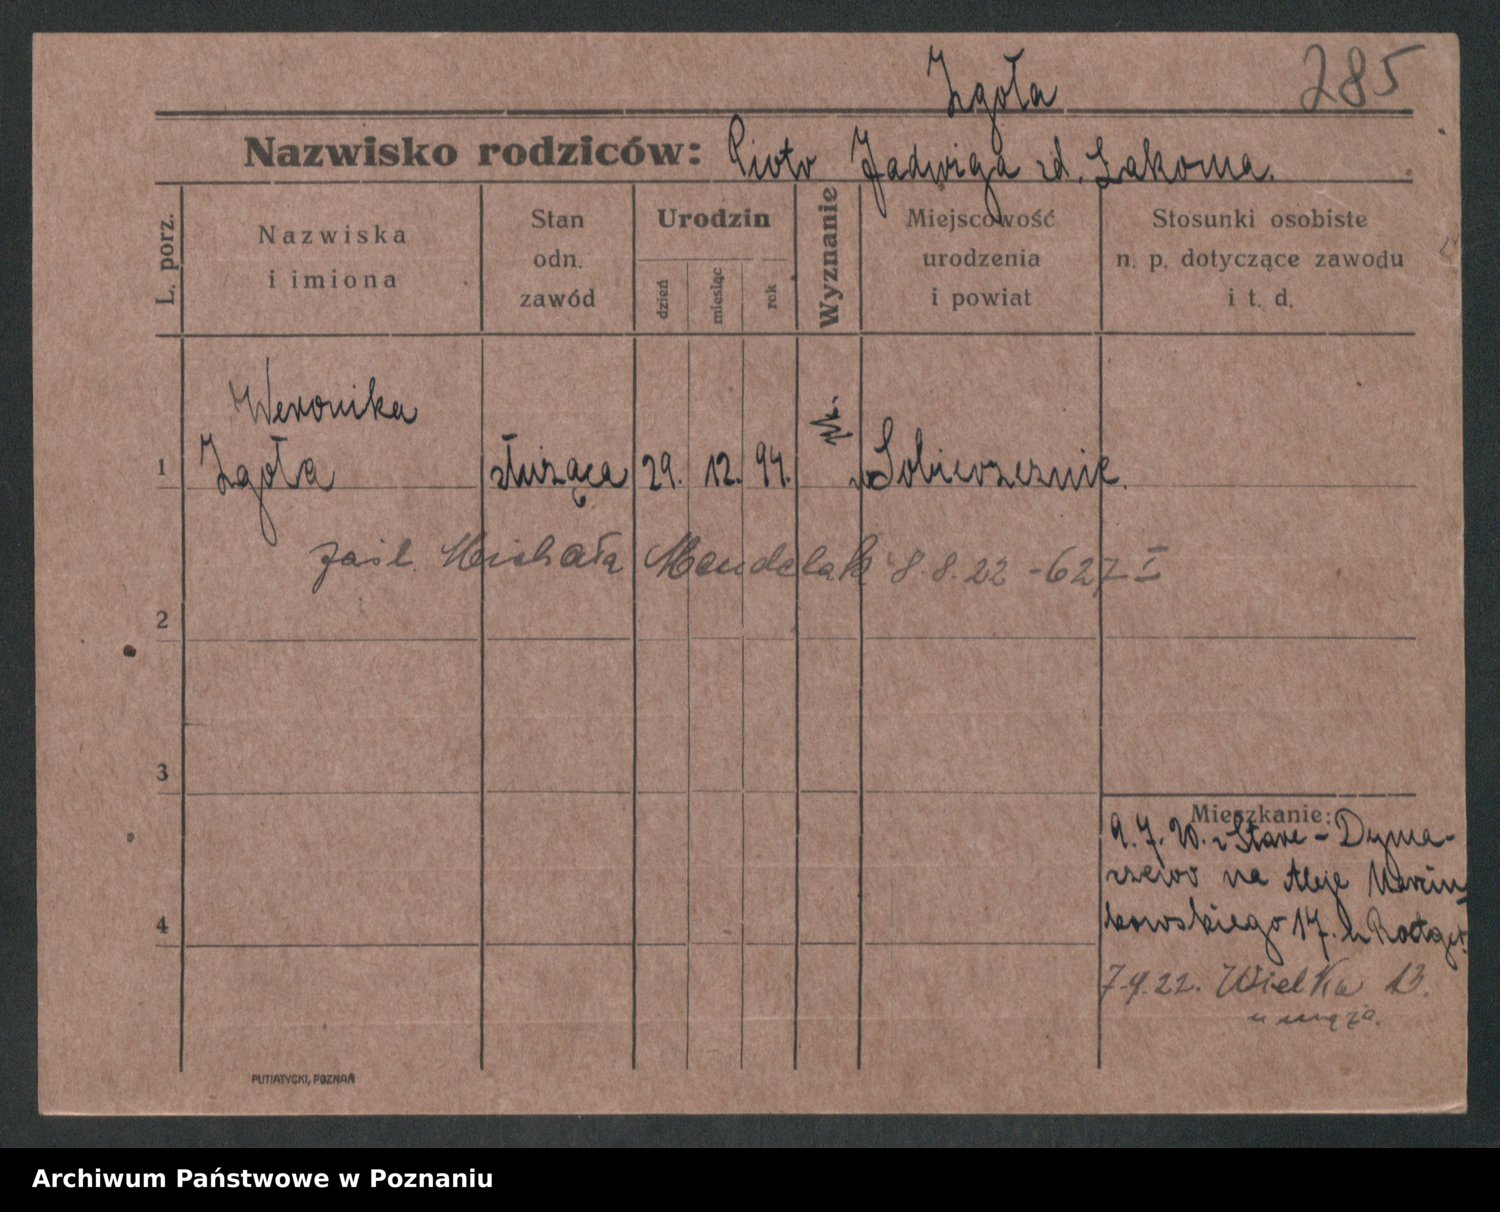 Zgoła 285
Nazwisko rodziców: Piotr Jadwiga zd. Łakoma.
L. porz.
Nazwiska
i imiona
Stan
odn.
zawód
Urodzin
dzień
miesiąc
rok
Wyznanie
Miejscowość
urodzenia
i powiat
Stosunki osobiste
n. p. dotyczące zawodu
i t. d.
Weronika
1 Zgoła służąca 29. 12. 94. rk. Sobieczernie.
zaśl. Michała Mendelak 8.8.22 - 627 I
2
3
Mieszkanie:
9.7.20. z Stare-Dyma-
czewo na Aleje Marcin-
4 kowskiego 17. u
7.9.22. Wielka 13.
u męża.
PUTIATYCKI, POZNAŃ
Archiwum Państwowe w Poznaniu